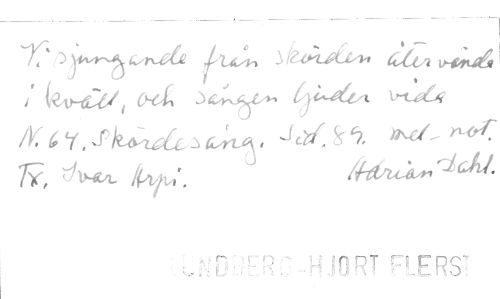 Vi sjungande från skörden återvända
i kväll, och sången ljuder vida
N. 64. Skördesång. Sid. 89. mel-not.
Tx. Ivar Arpi. Adrian Dahl.
UNDBERG-HJORT FLERST